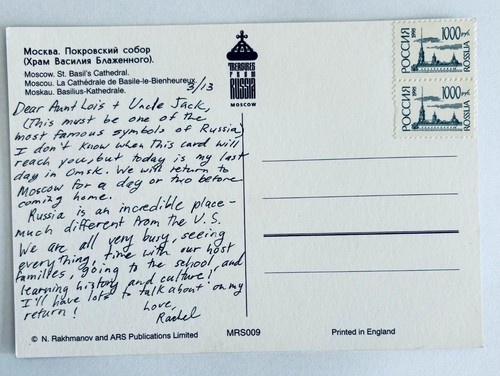 Москва. Покровский собор
(Храм Василия Блаженного).
Moscow. St. Basil's Cathedral.
Moscou. La Cathédrale de Basile-le-Bienheureux.
Moskau. Basilius-Kathedrale.
3/13
Dear Aunt Lois + Uncle Jack,
(This must be one of the
most famous symbols of Russia)
I don't know when this card will
reach you, but today is my last
day in Omsk. We will return to
Moscow for a day or two before
coming home.
Russia is an incredible place -
much different from the U.S.
We are all very busy, seeing
everything, time with our host
families, going to the school, and
learning history and culture!
I'll have lots to talk about on my
return!
Love,
Rachel
© N. Rakhmanov and ARS Publications Limited
TREASURES
FROM
RUSSIA
MOSCOW
РОССИЯ
1000 руб.
ROSSIJA
РОССИЯ
1000 руб.
ROSSIJA
MRS009
Printed in England